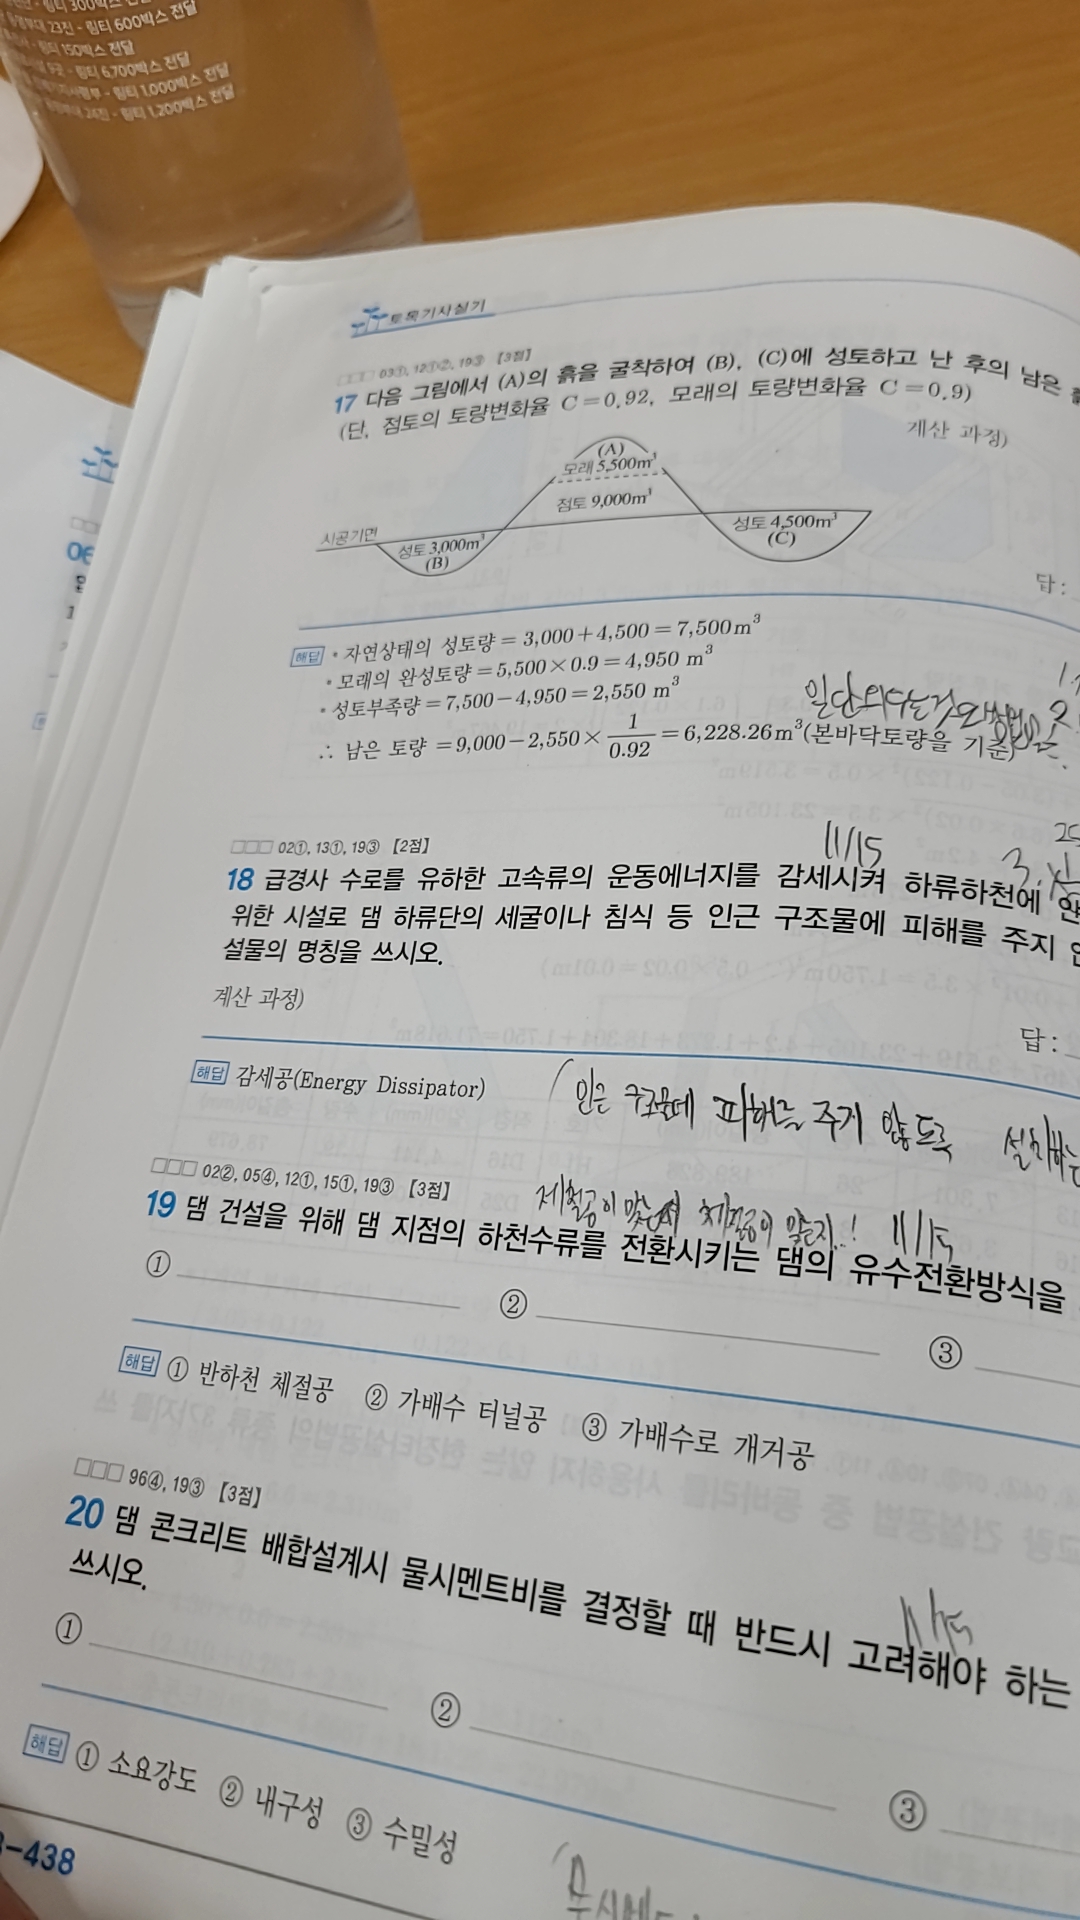 300박스
23진 - 링티 600박스 전달
링티 150박스 전달
링티 6,700박스 전달
링티 1,000박스 전달
24진 - 링티 1,200박스 전달
토목기사실기
03①, 12①②, 19③ 【3점】
17 다음 그림에서 (A)의 흙을 굴착하여 (B), (C)에 성토하고 난 후의 남은
(단, 점토의 토량변화율 C=0.92, 모래의 토량변화율 C=0.9)
계산 과정)
(A)
모래 5,500m³
점토 9,000m³
시공기면
성토 3,000m³
(B)
성토 4,500m³
(C)
답:
해답 • 자연상태의 성토량 = 3,000+4,500=7,500m³
• 모래의 완성토량=5,500×0.9=4,950 m³
• 성토부족량=7,500-4,950=2,550 m³
∴ 남은 토량 =9,000-2,550× 1/0.92 =6,228.26m³(본바닥토량을 기준)
□□□ 02①, 13①, 19③ 【2점】
11/15
18 급경사 수로를 유하한 고속류의 운동에너지를 감세시켜 하류하천에
위한 시설로 댐 하류단의 세굴이나 침식 등 인근 구조물에 피해를 주지
설물의 명칭을 쓰시오.
계산 과정)
답:
해답 감세공(Energy Dissipator)
인근 구조물에 피해를 주지 않도록 설치하는
□□□ 02②, 05④, 12①, 15①, 19③ 【3점】
11/15
19 댐 건설을 위해 댐 지점의 하천수류를 전환시키는 댐의 유수전환방식을
① ② ③
해답 ① 반하천 체절공 ② 가배수 터널공 ③ 가배수로 개거공
□□□ 96④, 19③ 【3점】
11/15
20 댐 콘크리트 배합설계시 물시멘트비를 결정할 때 반드시 고려해야 하는
쓰시오.
① ② ③
해답 ① 소요강도 ② 내구성 ③ 수밀성
-438